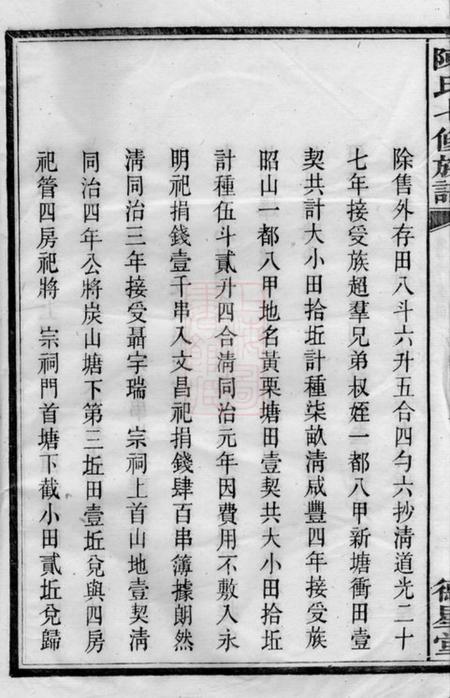 陳氏七修族譜
除售外存田八斗六升五合四勺六抄清道光二十
七年接受族超羣兄弟叔姪一都八甲新塘衝田壹
契共計大小田拾坵計種柒畝清咸豐四年接受族
昭山一都八甲地名黃栗塘田壹契共大小田拾坵
計種伍斗貳升四合清同治元年因費用不敷入永
明祀捐錢壹千串入文昌祀捐錢肆百串簿據朗然
清同治三年接受聶字瑞 宗祠上首山地壹契清
同治四年公將炭山塘下第三坵田壹坵兌與四房
祀管四房祀將 宗祠門首塘下截小田貳坵兌歸
德星堂